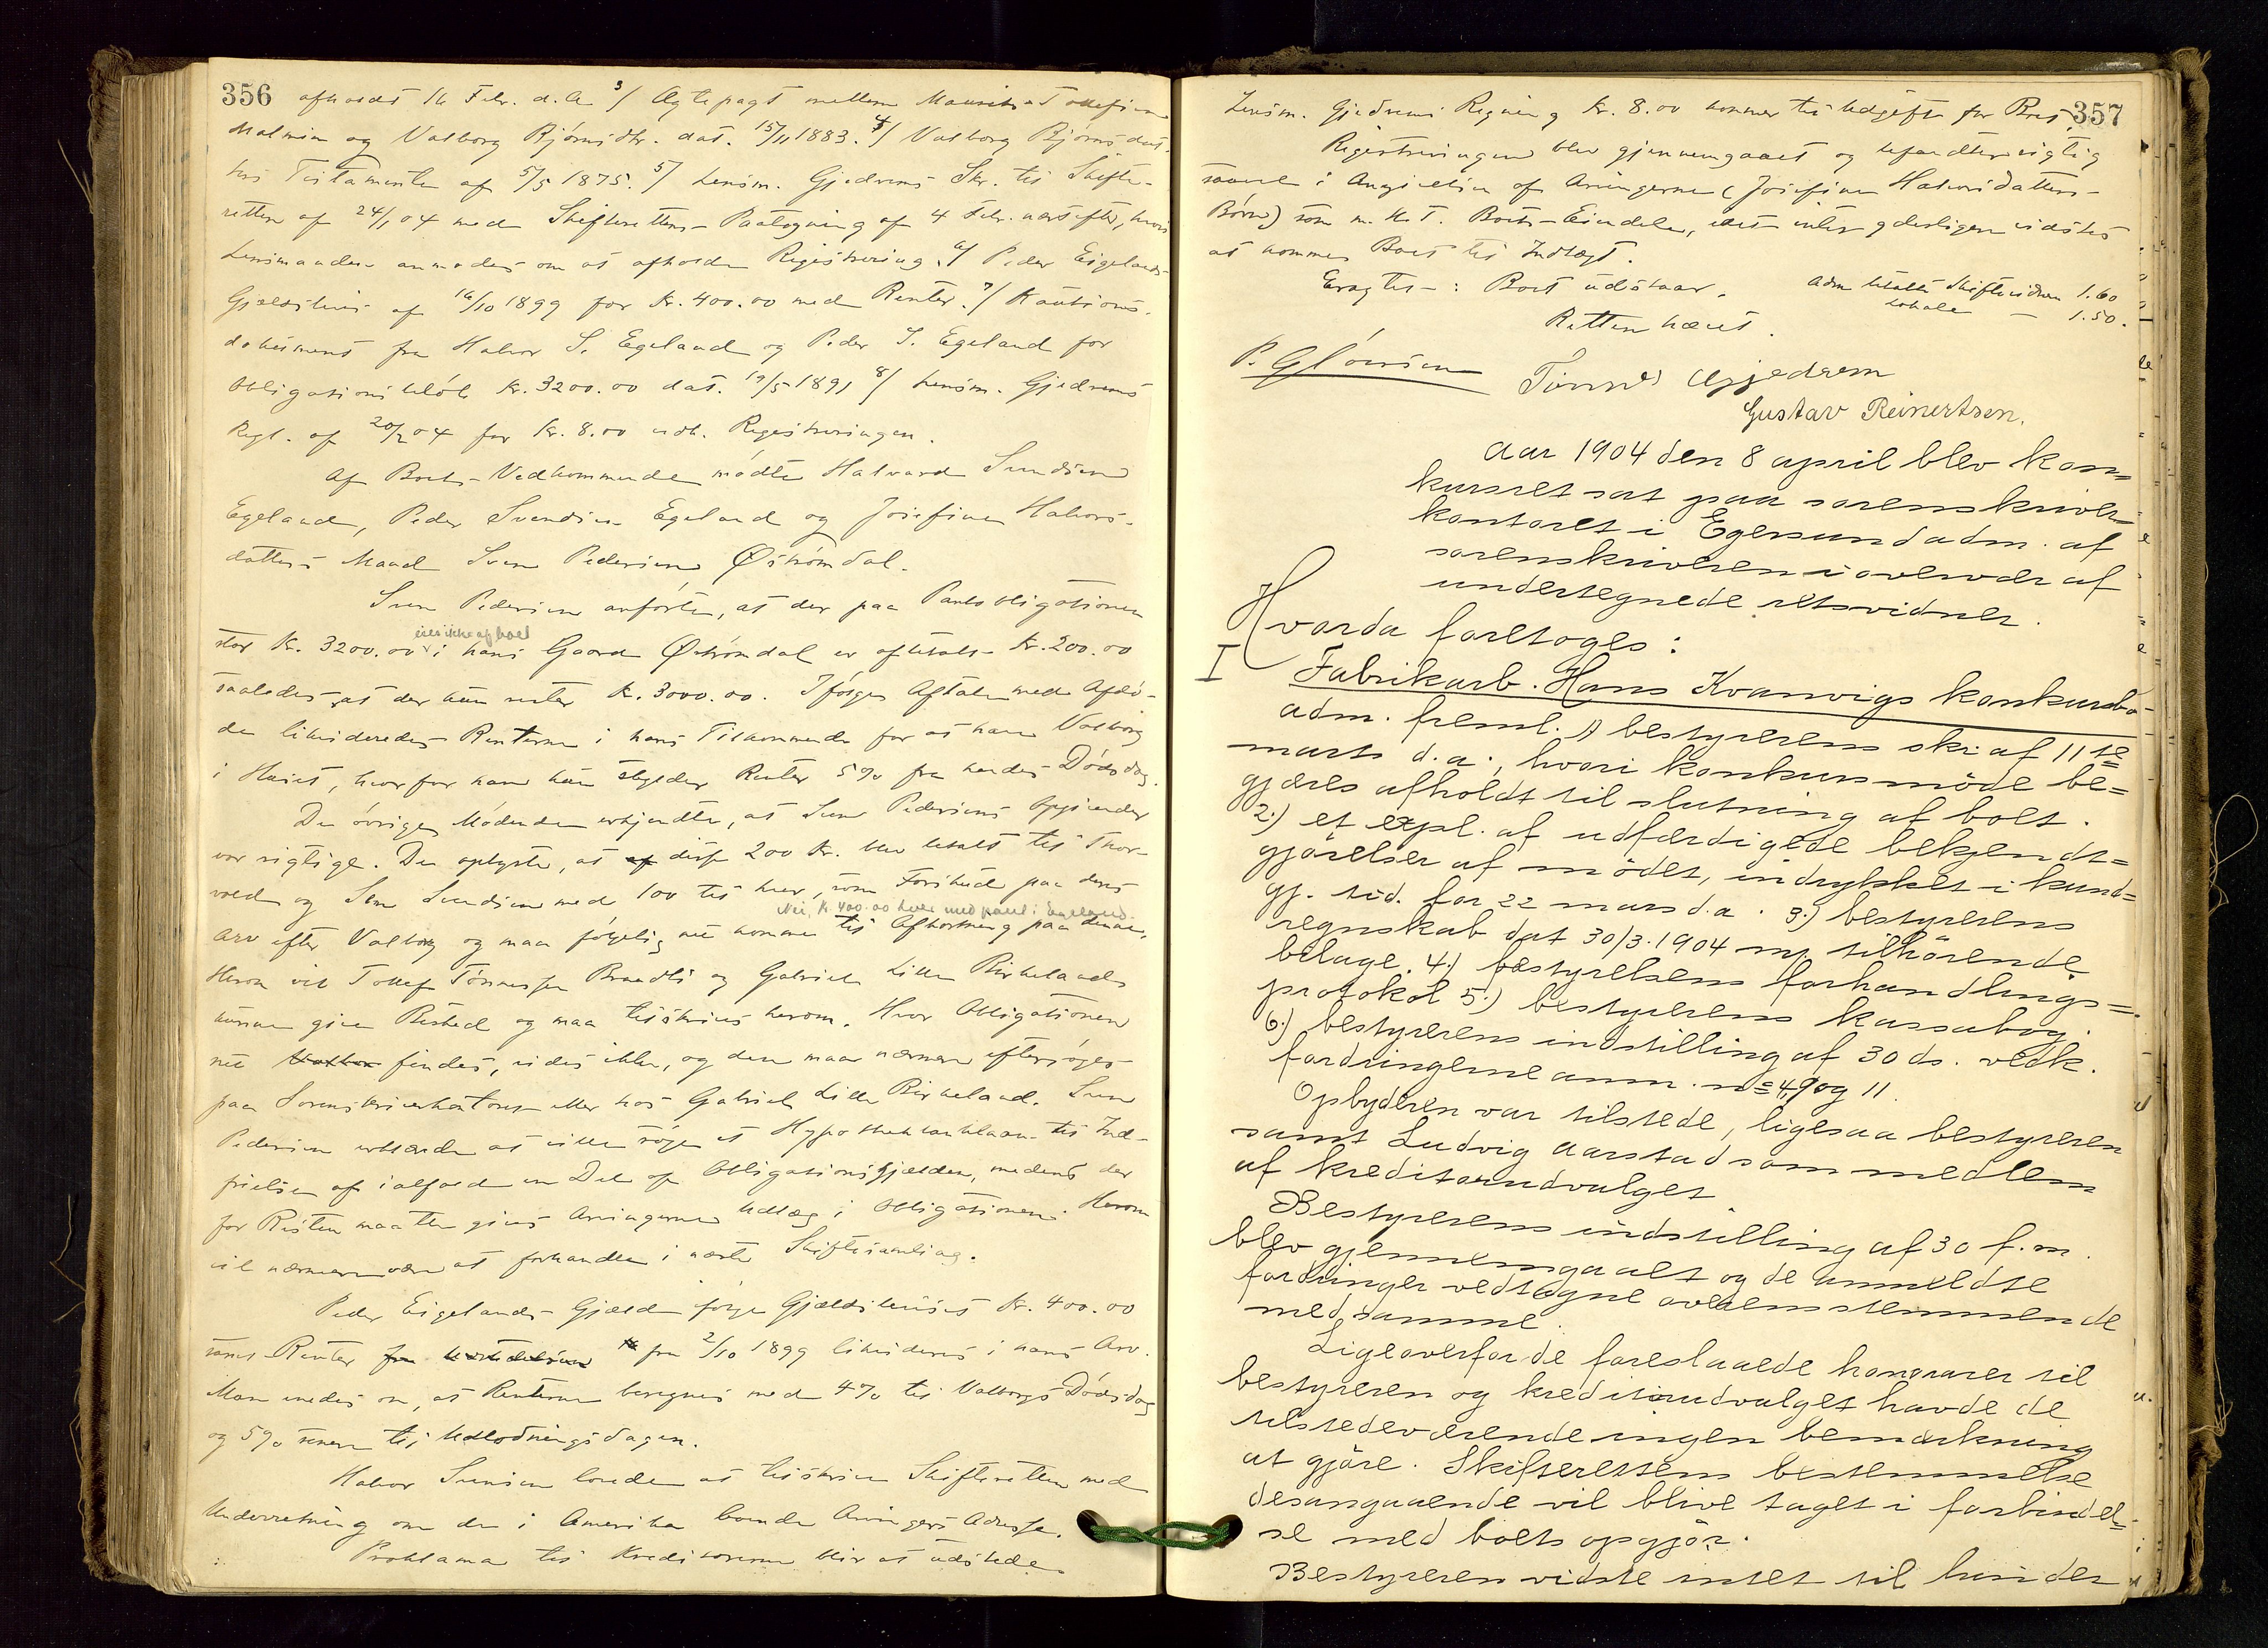 356
afholdt 16 Febr. d. A. 3/ Ægtepagt mellem Mauritz Tollefsen
Malmin og Valborg Bjørnsdtr. dat. 15/11 1883. 4/ Valborg Bjørnsdat-
ters Testamente af 5/5 1875. 5/ Lensm. Gjedrems Skr. til Skifte-
retten af 24/1 04 med Skifterettens Paategning af 4 Febr. næstefter, hvori
Lensmanden anmodes om at afholde Registrering. 6/ Peder Eigelands
Gjældsbevis af 16/10 1899 for Kr. 400.00 med Renter. 7/ Kautions-
dokument fra Halvor S. Egeland og Peder S. Egeland for
Obligationsbeløb Kr. 3200.00 dat. 19/5 1891 8/ Lensm. Gjedrems
Regn. af 20/2 04 for Kr. 8.00 vedk. Registreringen.
Af Boets Vedkommende mødte Halvard Svendsen
Egeland, Peder Svendsen Egeland og Josefine Halvors-
datters Mand Sven Pedersen Østrømdal.
Sven Pedersen anførte, at der paa Pantobligationen
eies ikke af boet
stor Kr. 3200.00 i hans Gaard Østrømdal er afbetalt Kr. 200.00
saaledes at der kun rester Kr. 3000.00. Ifølge Aftale med Afdø-
de likvideredes Renterne i hans Tilkommende for at have Valborg
i Huset, hvorfor han kun skylder Renter 5% fra hendes Dødsdag.
De øvrige Mødende erkjendte, at Sven Pedersens Opgivender
var rigtige. De oplyste, at af disse 200 Kr. blev betalt til Thor-
vald og Sven Svendsen med 100 til hver, som Forskud paa deres
Nei, Kr. 400.00 hver med pant i Egeland.
Arv efter Valborg og maa følgelig nu komme til Afkortning paa denne.
Herom vil Tollef Tønnessen Brædli og Gabriel Lille Birkeland
kunne give Besked og maa tilskrives herom. Hvor Obligationen
nu findes, vides ikke, og den maa nærmere eftersøges
paa Sorenskriverkontoret eller hos Gabriel Lille Birkeland. Sven
Pedersen erklærede at ville søge et Hypothekbanklaan til Ind-
frielse af ialfald en Del af Obligationsgjælden, medens der
for Resten maatte gives Arvingerne Udlæg i Obligationen. Herom
vil nærmere være at forhandle i næste Skiftesamling.
Peder Eigelands Gjæld ifølge Gjældsbeviset Kr. 400.00
samt Renter fra 2/10 1899 likvideres i hans Arv.
Man enedes om, at Renterne beregnes med 4% til Valborgs Dødsdag
og 5% senere til Udlodningsdagen.
Halvor Svensen lovede at tilskrive Skifteretten med
Underretning om de i Amerika boende Arvingers Adresse.
Proklama til Kreditorerne blir at udstede.
357
Lensm. Gjedrems Regning Kr. 8.00 kommer til Udgift for Boet.
Registreringen blev gjennemgaaet og befandtes rigtig
saavel i Angivelsen af Arvingerne (Josefine Halvorsdatters
Børn) som m. H. T. Boets Eiendele, idet intet yderligere vidstes
at komme Boet til Indtægt.
Eragtes: Boet udstaar.
Adm betalte Skiftevidner 1.60
Lokale — 1.50.
Retten hævet.
Tønnes Gjedrem
Gustav Reinertsen.
Aar 1904 den 8 april blev kon-
kursret sat paa sorenskriver-
kontoret i Egersund adm. af
sorenskriveren i overvær af
undertegnede retsvidner.
Hvorda foretoges:
I
Fabrikarb. Hans Kvanvigs konkursbo
adm. freml. 1) bestyrerens skr. af 11te
marts d.a., hvori konkursmöde be=
gjæres afholdt til slutning af boet.
2.) et expl. af udfærdigede bekjendt=
gjörelser af mödet, indrykket i kund=
gj. tid. for 22 mars d.a. 3.) bestyrerens
regnskab dat 30/3.1904 m. tilhörende
bilage. 4.) bestyrelsens forhandlings=
protokol 5.) bestyrerens kassabog.
6.) bestyrerens indstilling af 30 ds. vedk.
fordringerne anm. no 4, 9 og 11.
Opbyderen var tilstede, ligesaa bestyreren
samt Ludvig Aarstad som medlem
af kreditorudvalget
Bestyrerens indstilling af 30 f.m.
blev gjennemgaaet og de anmeldte
fordringer vedtagne overensstemmende
med samme.
Ligeoverfor de foreslaaede honorarer til
bestyreren og kreditorudvalget havde de
tilstedeværende ingen bemærkning
at gjöre. Skifterettens bestemmelse
desangaaende vil blive taget i forbindel=
se med boets opgjör.
Bestyreren vidste intet til hinder